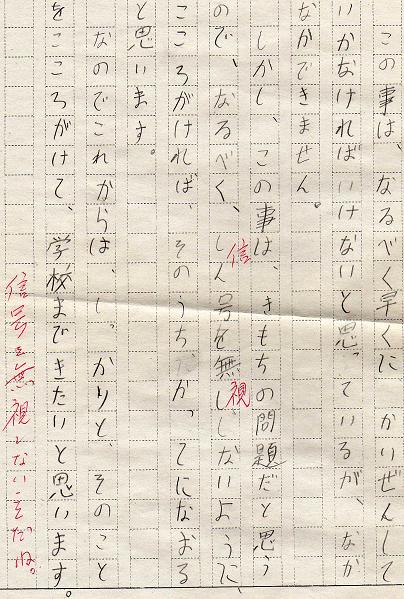 この事は、なるべく早くに かいぜんして
いかなければいけないと思っているが、なか
なかできません。
しかし、この事は、きもちの問題だと思う
信
視
ので、なるべく、しん号を無ししないように、
こころがければ、そのうちかってになおる
と思います。
なのでこれからは、しっかりと、そのこと
をこころがけて、学校まできたいと思います。
信号を無視しないことだね。